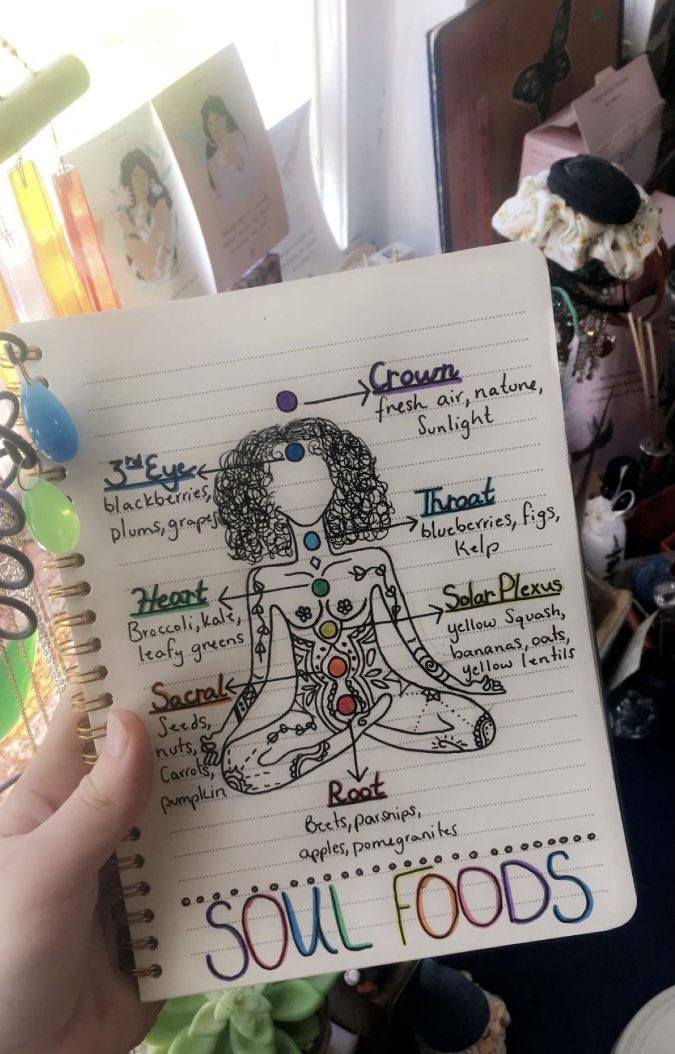 Crown
fresh air, nature,
Sunlight
3rd Eye
blackberries,
plums, grapes
Throat
blueberries, figs,
Kelp
Heart
Broccoli, kale,
leafy greens
Solar Plexus
yellow Squash,
bananas, oats,
yellow lentils
Sacral
Seeds,
nuts,
Carrots,
pumpkin
Root
Beets, parsnips,
apples, pomegranites
SOUL FOODS